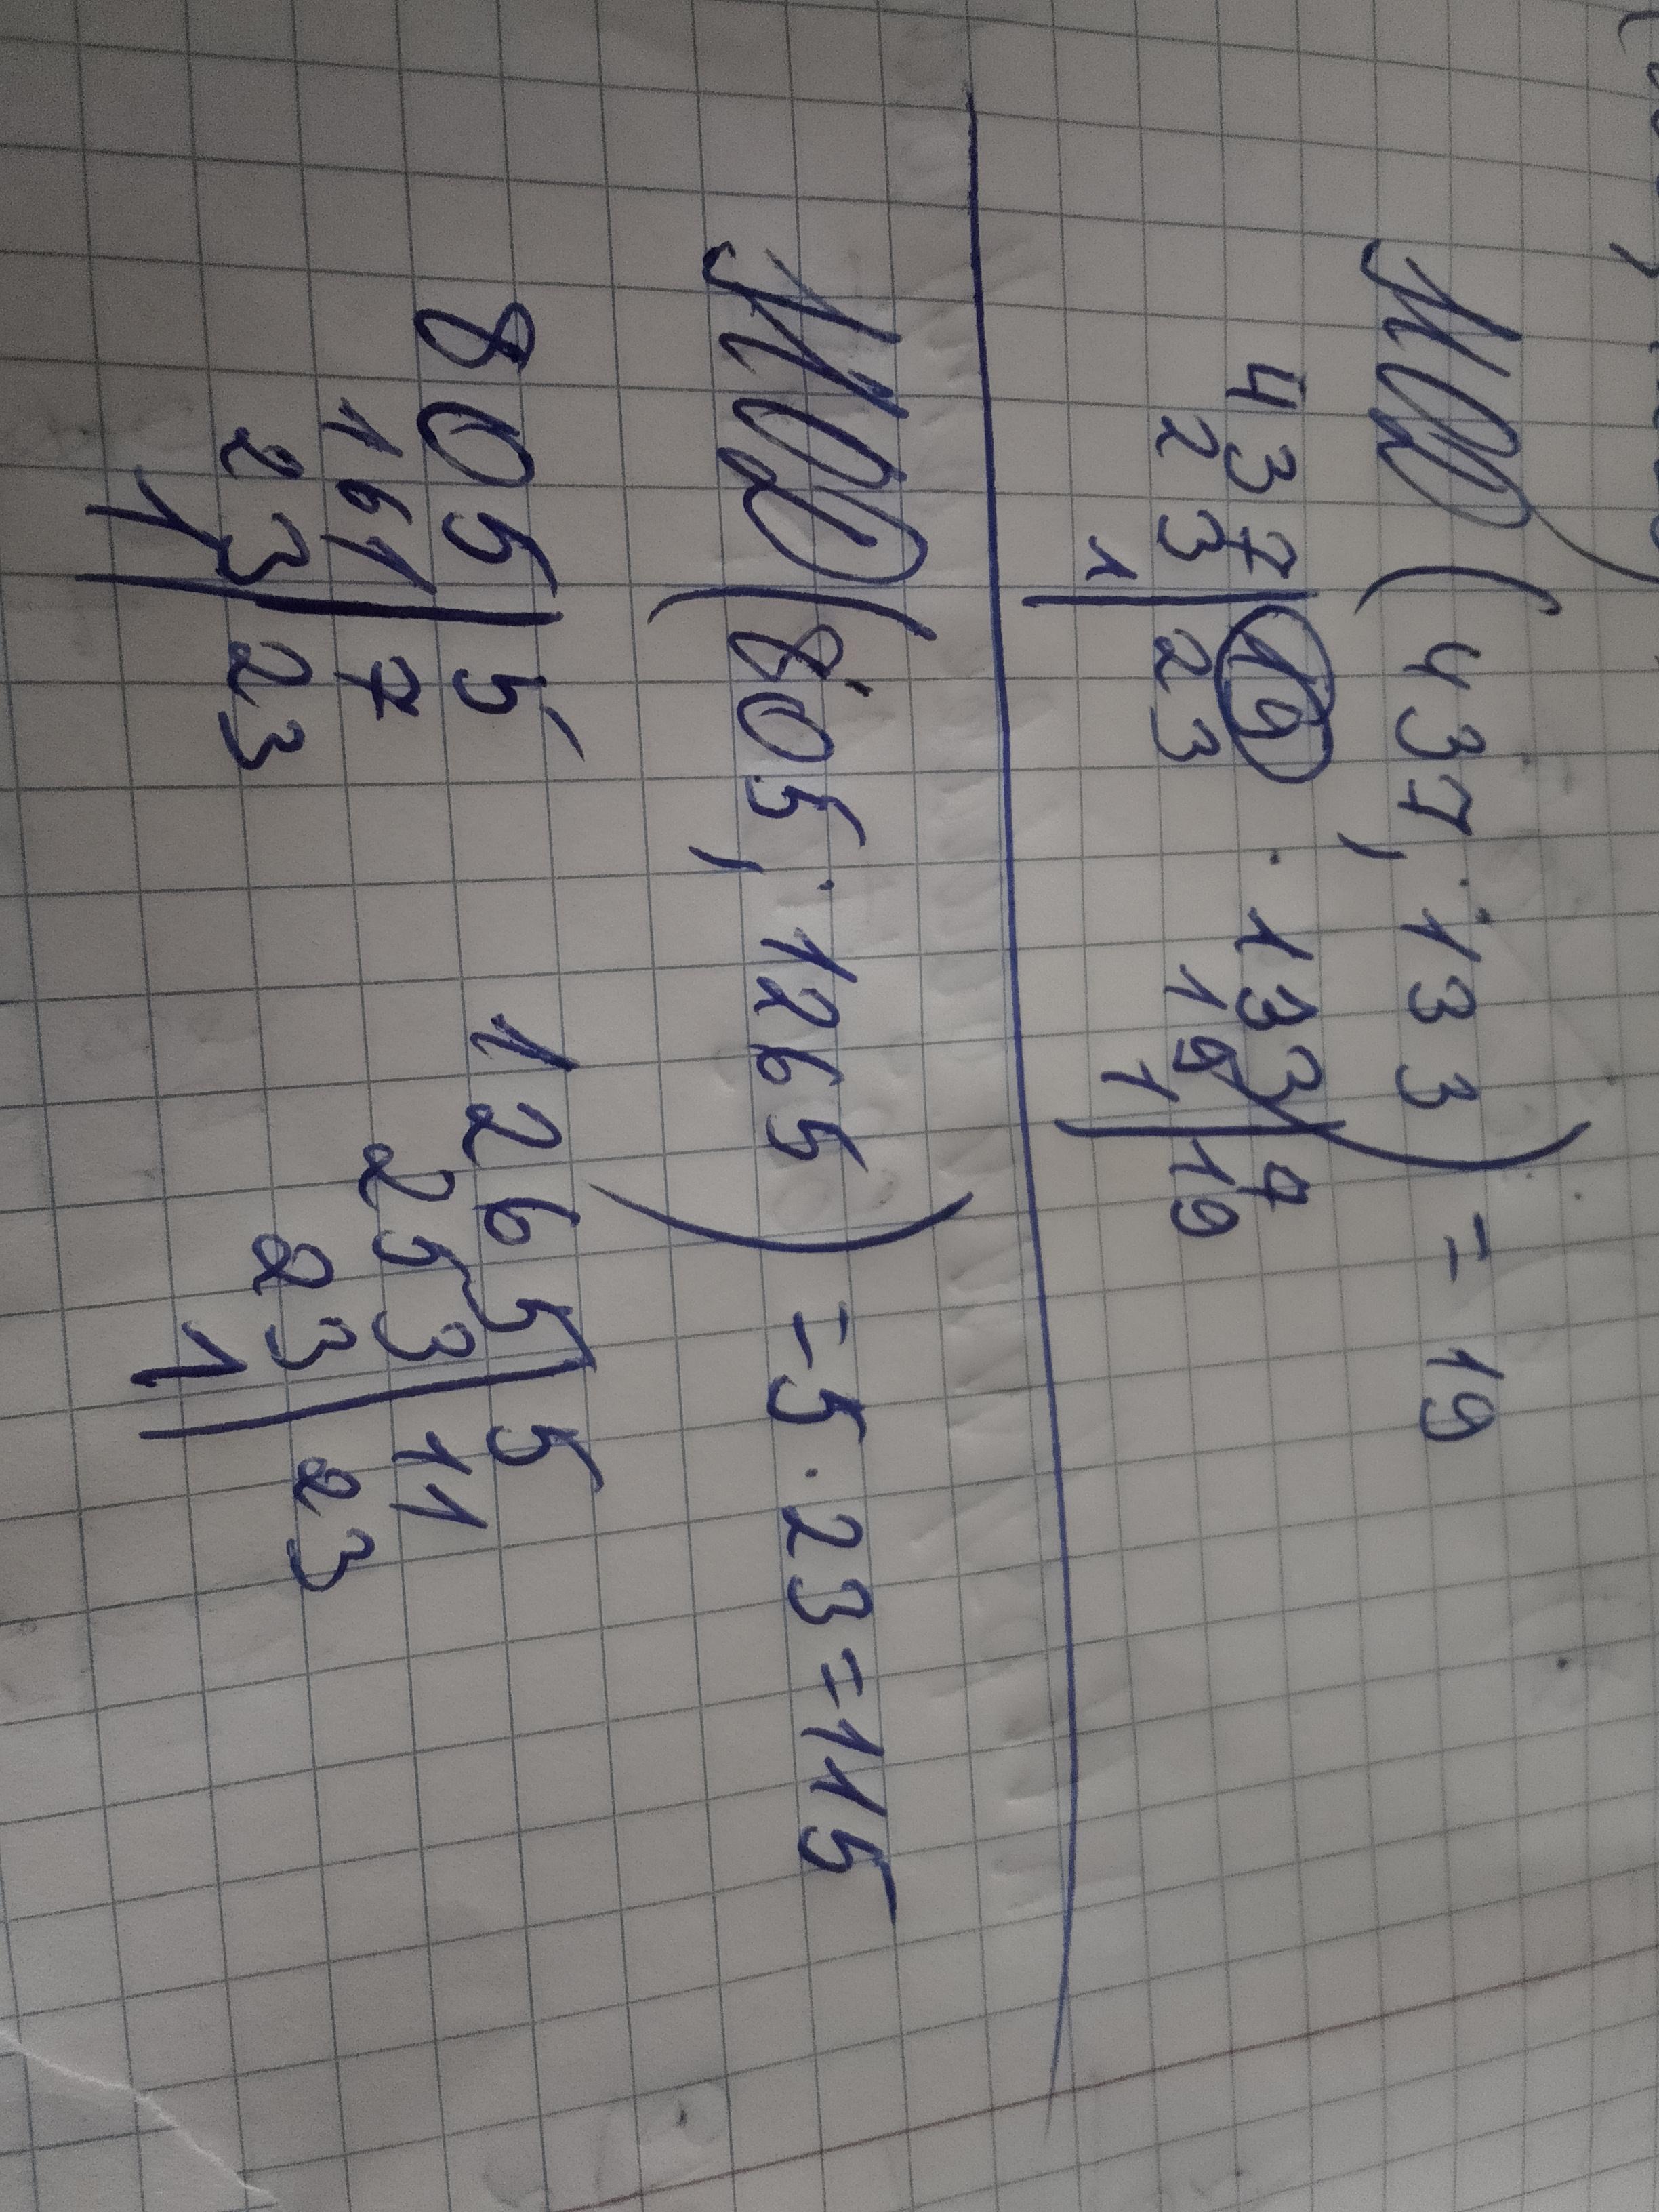 НОД (437, 133) = 19
437 | 19 133 | 7
23 | 23 19 | 19
1 | 1 |
НОД (805, 1265) = 5 · 23 = 115
805 | 5 1265 | 5
161 | 7 253 | 11
23 | 23 23 | 23
1 | 1 |